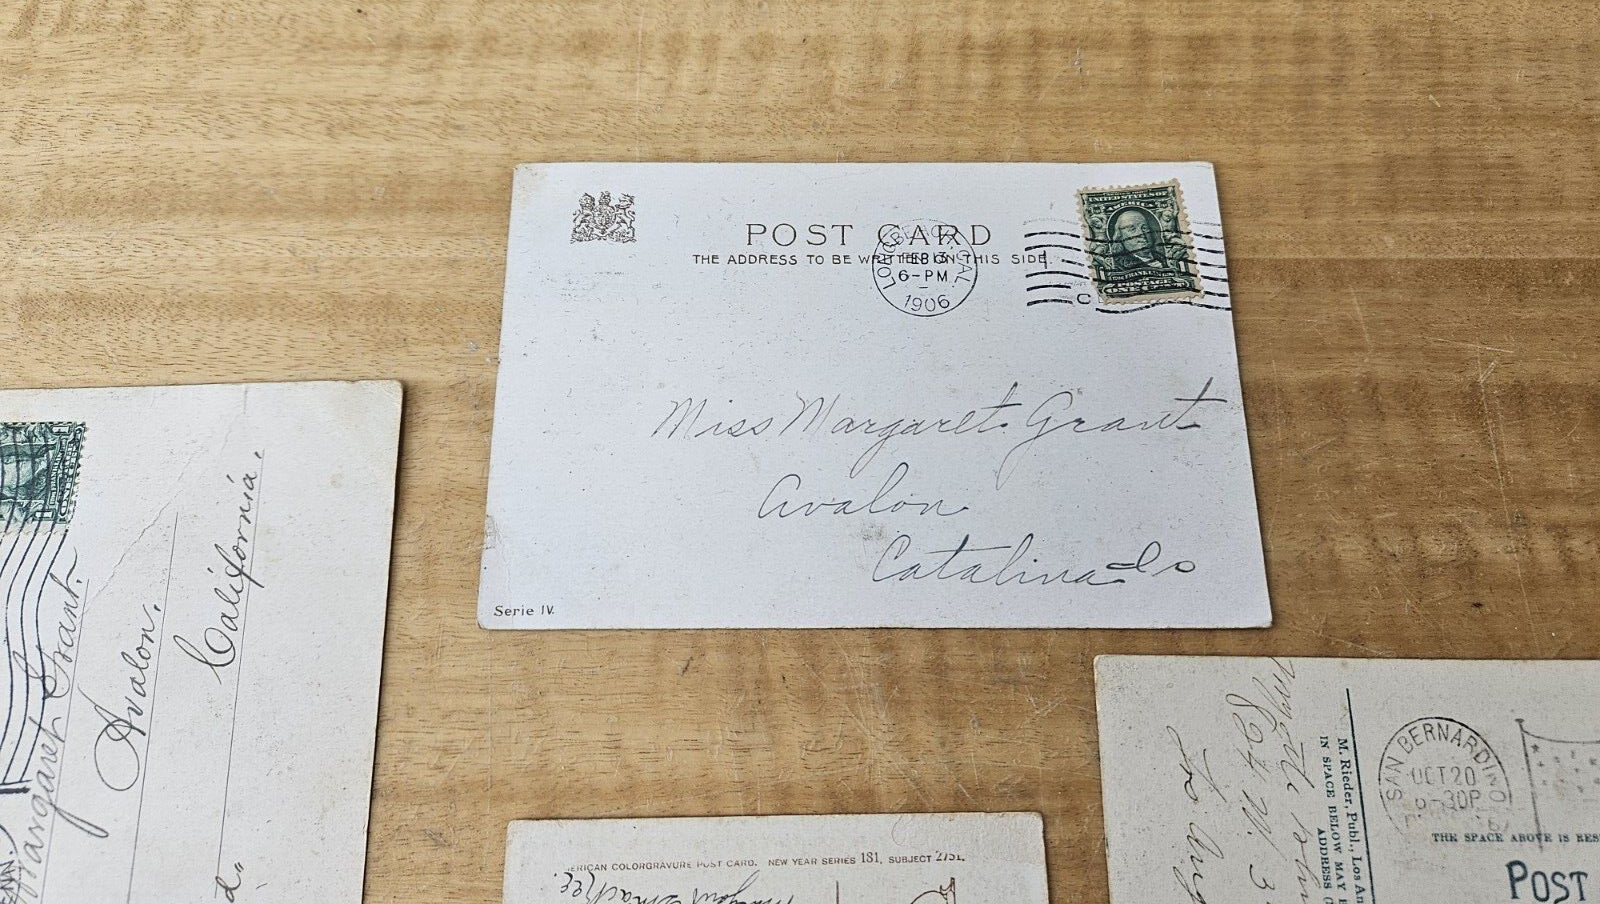 POST CARD
THE ADDRESS TO BE WRITTEN ON THIS SIDE.
LONG BEACH, CAL.
FEB 3
6-PM
1906
UNITED STATES OF
AMERICA
FRANKLIN
POSTAGE
ONE CENT
Miss Margaret Grant
Avalon
Catalina Is
Serie IV.
Margaret Grant.
Avalon.
California.
AMERICAN COLORGRAVURE POST CARD. NEW YEAR SERIES 181, SUBJECT 2751.
824 W. 3
Los Ang
M. Rieder, Publ., Los An
IN SPACE BELOW MAY
ADDRESS
SAN BERNARDINO
OCT 20
30P
THE SPACE ABOVE IS RES
POST